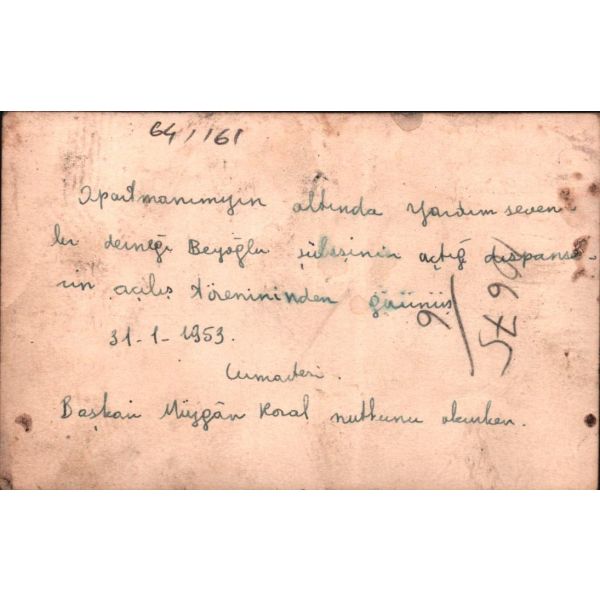 64/161
Apartmanımızın altında Yardım seven
ler derneği Beyoğlu şubesinin açtığ dispanse-
rin açılış töreninden görünüş
31-1-1953.
Cumartesi.
Başkan Müjgân Koral nutkunu okurken.